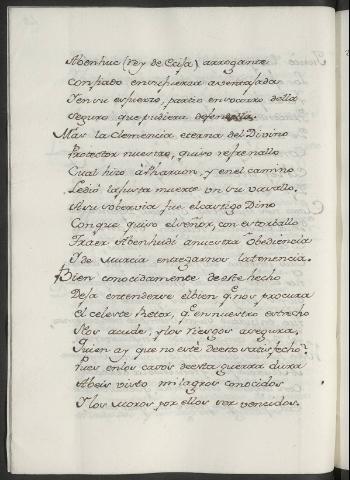 Abenhuc (Rey de Ecija) arrogante
confiado en su fuerza assentajada
Y en su esfuerzo, partio en socorro della
seguro que pudiera defendella.
Mas la clemencia eterna del Divino
Protector nuestro, quiso refrenallo
Cual hizo a Pharaon, y en el camino
Le dió la justa muerte un su vasallo.
A su sobervia fue el castigo Dino
Con que quiso el señor, con estorballo
Traer Abenhudi a nuestra obediencia
Y de Murcia entregarnos la tenencia.
Bien conocidamente de este hecho
Deja entenderse el bien q.e nos procura
El celeste Retor, q.e en nuestro estrecho
Nos acude, y los riesgos asegura,
Quien ay que no esté de esto satisfecho?
Pues en los casos de esta guerra dura
Abeis visto milagros conocidos
Y los Moros por ellos ser vencidos.